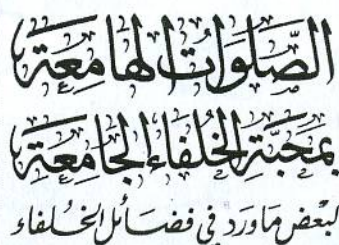 الصَّلَوَاتُ الهَامِعَة
بِمَحَبَّةِ الخُلَفَاءِ الجَامِعَة
لبعض ما ورد في فضائل الخلفاء